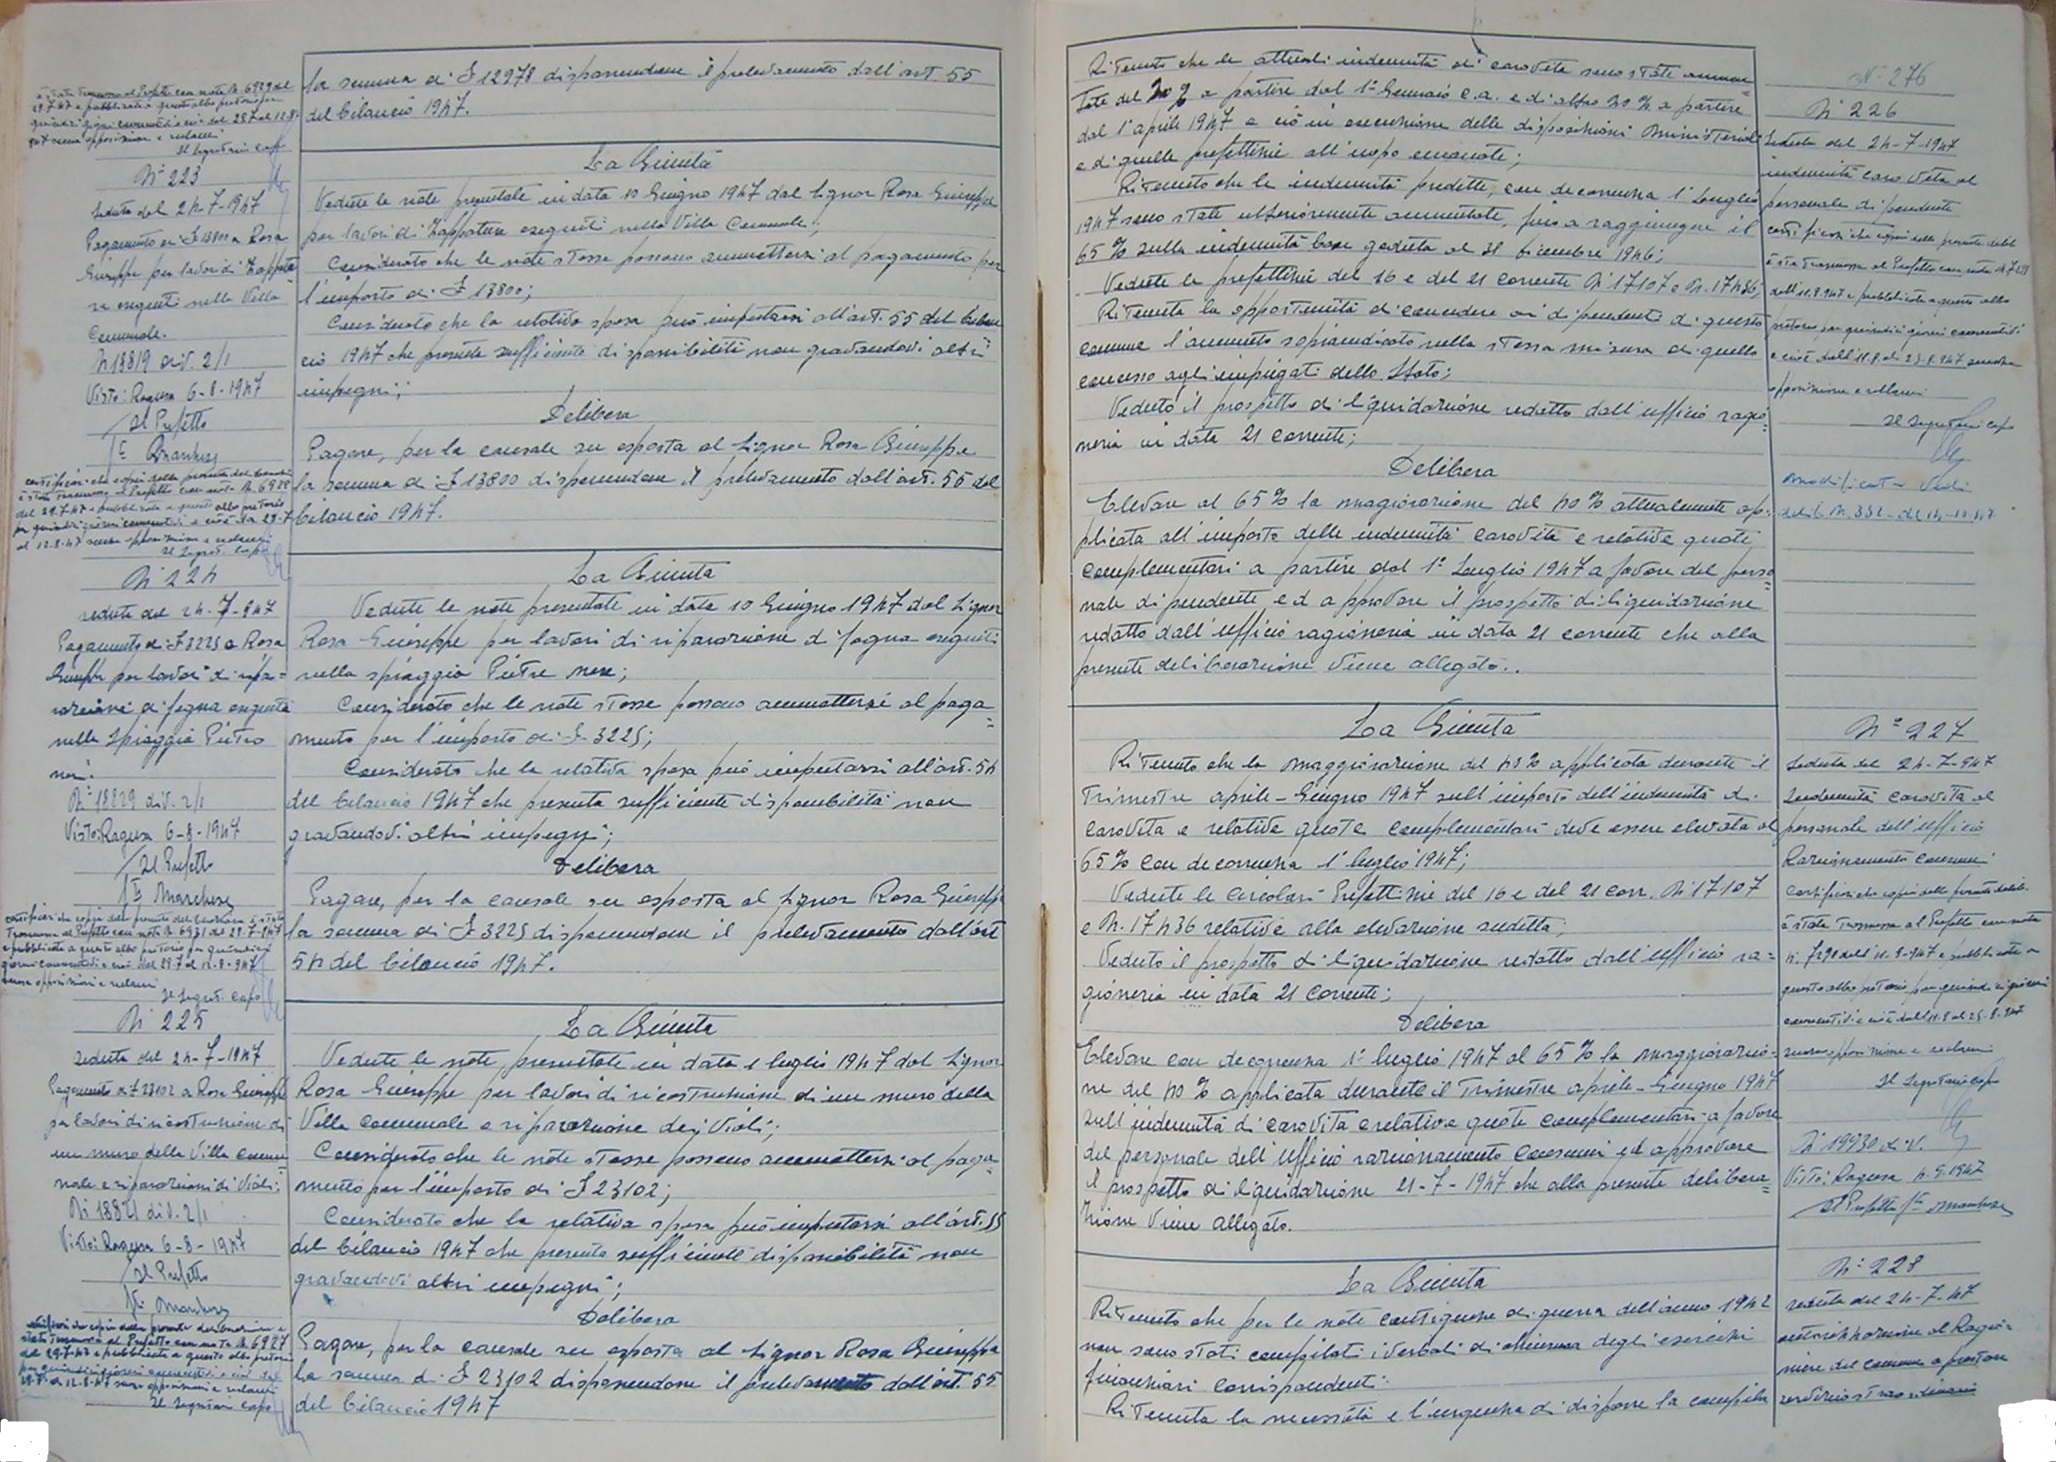 la somma di £ 12978 disponendone il prelevamento dall'art. 55
del bilancio 1947.
è stata trasmessa al Prefetto con nota N. 6929 del
29.7.47 e pubblicata a questo albo pretorio per
quindici giorni consecutivi e cioè dal 29.7 al 12.8.
947 senza opposizioni e reclami
Il Segretario Capo
N° 223
Seduta del 24-7-1947
Pagamento di £ 13800 a Rosa
Giuseppe per lavori di Zappatu
ra eseguiti nella Villa
Comunale.
N 18819 div. 2/1
Visto: Ragusa 6-8-1947
Il Prefetto
F° Marchese
La Giunta
Vedute le note presentate in data 10 Giugno 1947 dal Signor Rosa Giuseppe
per lavori di Zappatura eseguiti nella Villa Comunale;
Considerato che le note stesse possono ammettersi al pagamento per
l'importo di £ 13800;
Considerato che la relativa spesa può imputarsi all'art. 55 del bilan
cio 1947 che presenta sufficiente disponibilità non gravandovi altri
impegni;
Delibera
Pagare, per la causale su esposta al Signor Rosa Giuseppe
la somma di £ 13800 disponendone il prelevamento dall'art. 55 del
bilancio 1947.
certifico che copia della presente deliberazione
è stata trasmessa al Prefetto con nota N. 6928
del 29.7.47 e pubblicata a questo albo pretorio
per quindici giorni consecutivi e cioè dal 29.7
al 12.8.47 senza opposizioni e reclami
Il Segret. Capo
N° 224
seduta del 24-7-947
Pagamento di £ 3225 a Rosa
Giuseppe per lavori di ripa=
razione di fogna eseguita
nella Spiaggia Pietre
nere.
N° 18829 div. 2/1
Visto: Ragusa 6-8-1947
Il Prefetto
F° Marchese
La Giunta
Vedute le note presentate in data 10 Giugno 1947 dal Signor
Rosa Giuseppe per lavori di riparazione di fogna eseguiti
nella spiaggia Pietre nere;
Considerato che le note stesse possono ammettersi al paga=
mento per l'importo di £ 3225;
Considerato che la relativa spesa può imputarsi all'art. 54
del bilancio 1947 che presenta sufficiente disponibilità non
gravandovi altri impegni;
Delibera
Pagare, per la causale su esposta al Signor Rosa Giuseppe
la somma di £ 3225 disponendone il prelevamento dall'art
54 del bilancio 1947.
certifico che copia della presente deliberazione è stata
trasmessa al Prefetto con nota N. 6931 del 29-7-947
e pubblicata a questo albo pretorio per quindici
giorni consecutivi e cioè dal 29.7 al 12-8-947
senza opposizioni e reclami
Il Segret. Capo
N° 225
seduta del 24-7-1947
Pagamento di £ 23102 a Rosa Giuseppe
per lavori di ricostruzione di
un muro della Villa comu
nale e riparazioni di Viali.
N° 18821 div. 2/1
Visto: Ragusa 6-8-1947
Il Prefetto
F° Marchese
La Giunta
Vedute le note presentate in data 1 luglio 1947 dal Signor
Rosa Giuseppe per lavori di ricostruzione di un muro della
Villa comunale e riparazione dei Viali;
Considerato che le note stesse possono ammettersi al paga=
mento per l'importo di £ 23102;
Considerato che la relativa spesa può imputarsi all'art. 55
del bilancio 1947 che presenta sufficiente disponibilità non
gravandovi altri impegni;
Delibera
Pagare, per la causale su esposta al Signor Rosa Giuseppe
la somma di £ 23102 disponendone il prelevamento dall'art. 55
del bilancio 1947
certifico che copia della presente deliberazione è
stata trasmessa al Prefetto con nota N. 6927
del 29-7-47 e pubblicata a questo albo pretorio
per quindici giorni consecutivi e cioè dal
29.7 al 12-8-47 senza opposizioni e reclami
Il Segretario Capo
Ritenuto che le attuali indennità di carovita sono state aumen=
tate del 20 % a partire dal 1° Gennaio c.a. e di altro 20 % a partire
dal 1° aprile 1947 e ciò in esecuzione delle disposizioni Ministeriali
e di quelle prefettizie all'uopo emanate;
Ritenuto che le indennità predette, con decorrenza 1° Luglio
1947 sono state ulteriormente aumentate, fino a raggiungere il
65 % sulla indennità base goduta al 31 dicembre 1946;
Vedute le prefettizie del 16 e del 21 corrente N° 17107 e N. 17436;
Ritenuta la opportunità di concedere ai dipendenti di questo
comune l'aumento sopraindicato nella stessa misura di quello
concesso agli impiegati dello Stato;
Veduto il prospetto di liquidazione redatto dall'ufficio ragio=
neria in data 21 corrente;
Delibera
Elevare al 65 % la maggiorazione del 40 % attualmente ap=
plicata all'importo delle indennità carovita e relative quote
complementari a partire dal 1° Luglio 1947 a favore del perso=
nale dipendente ed approvare il prospetto di liquidazione
redatto dall'ufficio ragioneria in data 21 corrente che alla
presente deliberazione viene allegato.
N° 276
N° 226
Seduta del 24-7-1947
indennità caro vita al
personale dipendente
certifico che copia della presente delib.
è stata trasmessa al Prefetto con nota
dell'11.8.947 e pubblicata a questo albo
pretorio per quindici giorni consecutivi
e cioè dall'11.8 al 25-8-947 senza
opposizioni e reclami
Il Segretario Capo
Modificata Vedi
delib. N. 332 del 14-11-47
La Giunta
Ritenuto che la maggiorazione del 40 % applicata durante il
trimestre aprile-Giugno 1947 sull'importo dell'indennità di
carovita e relative quote complementari deve essere elevata al
65 % con decorrenza 1° luglio 1947;
Vedute le Circolari Prefettizie del 16 e del 21 corr. N° 17107
e N. 17436 relative alla elevazione suddetta;
Veduto il prospetto di liquidazione redatto dall'ufficio ra=
gioneria in data 21 corrente;
Delibera
Elevare con decorrenza 1° luglio 1947 al 65 % la maggiorazio=
ne del 40 % applicata durante il trimestre aprile-Giugno 1947
sull'indennità di carovita e relative quote complementari a favore
del personale dell'ufficio razionamento consumi ed approvare
il prospetto di liquidazione 21-7-1947 che alla presente delibera=
zione viene allegato.
N° 227
Seduta del 24-7-947
Indennità carovita al
personale dell'ufficio
Razionamento consumi
certifico che copia della presente delib.
è stata trasmessa al Prefetto con nota
N. 7290 dell'11-8-947 e pubblicata a
questo albo pretorio per quindici giorni
consecutivi e cioè dall'11.8 al 25-8-947
senza opposizioni e reclami
Il Segretario Capo
N° 19930 div.
Visto: Ragusa 4-9-1947
Il Prefetto F° Marchese
La Giunta
Ritenuto che per le note contingenze di guerra dell'anno 1942
non sono stati compilati i verbali di chiusura degli esercizi
finanziari corrispondenti.
Ritenuta la necessità e l'urgenza di disporre la compila
N° 228
seduta del 24-7-47
autorizzazione al Ragio=
niere del comune a prestare
servizio straordinario